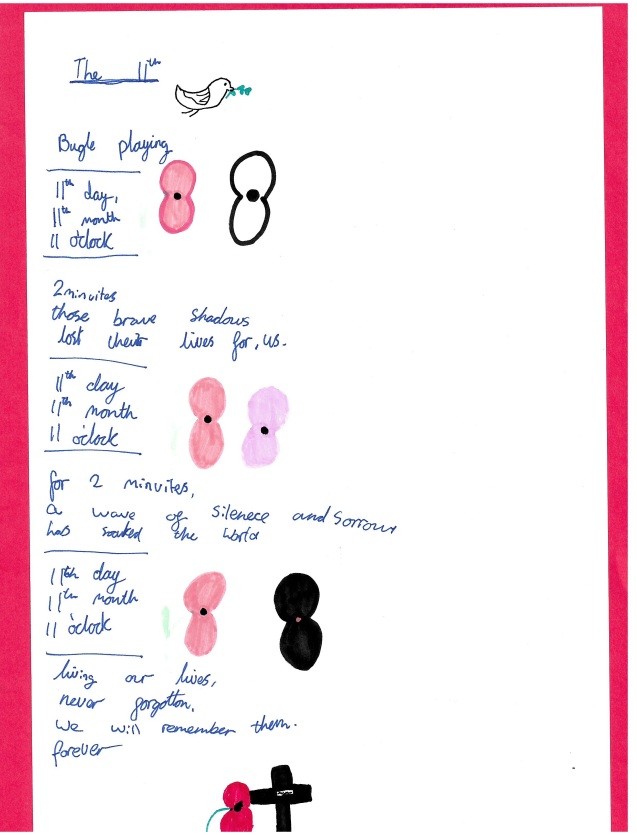 The 11th
Bugle playing
11th day,
11th month
11 o'clock
2 minuites
those brave shadows
lost their lives for, us.
11th day
11th month
11 o'clock
for 2 minuites,
a wave of silenece and sorrow
has soaked the world
11th day
11th month
11 o'clock
living our lives,
never forgotton,
we will remember them.
forever